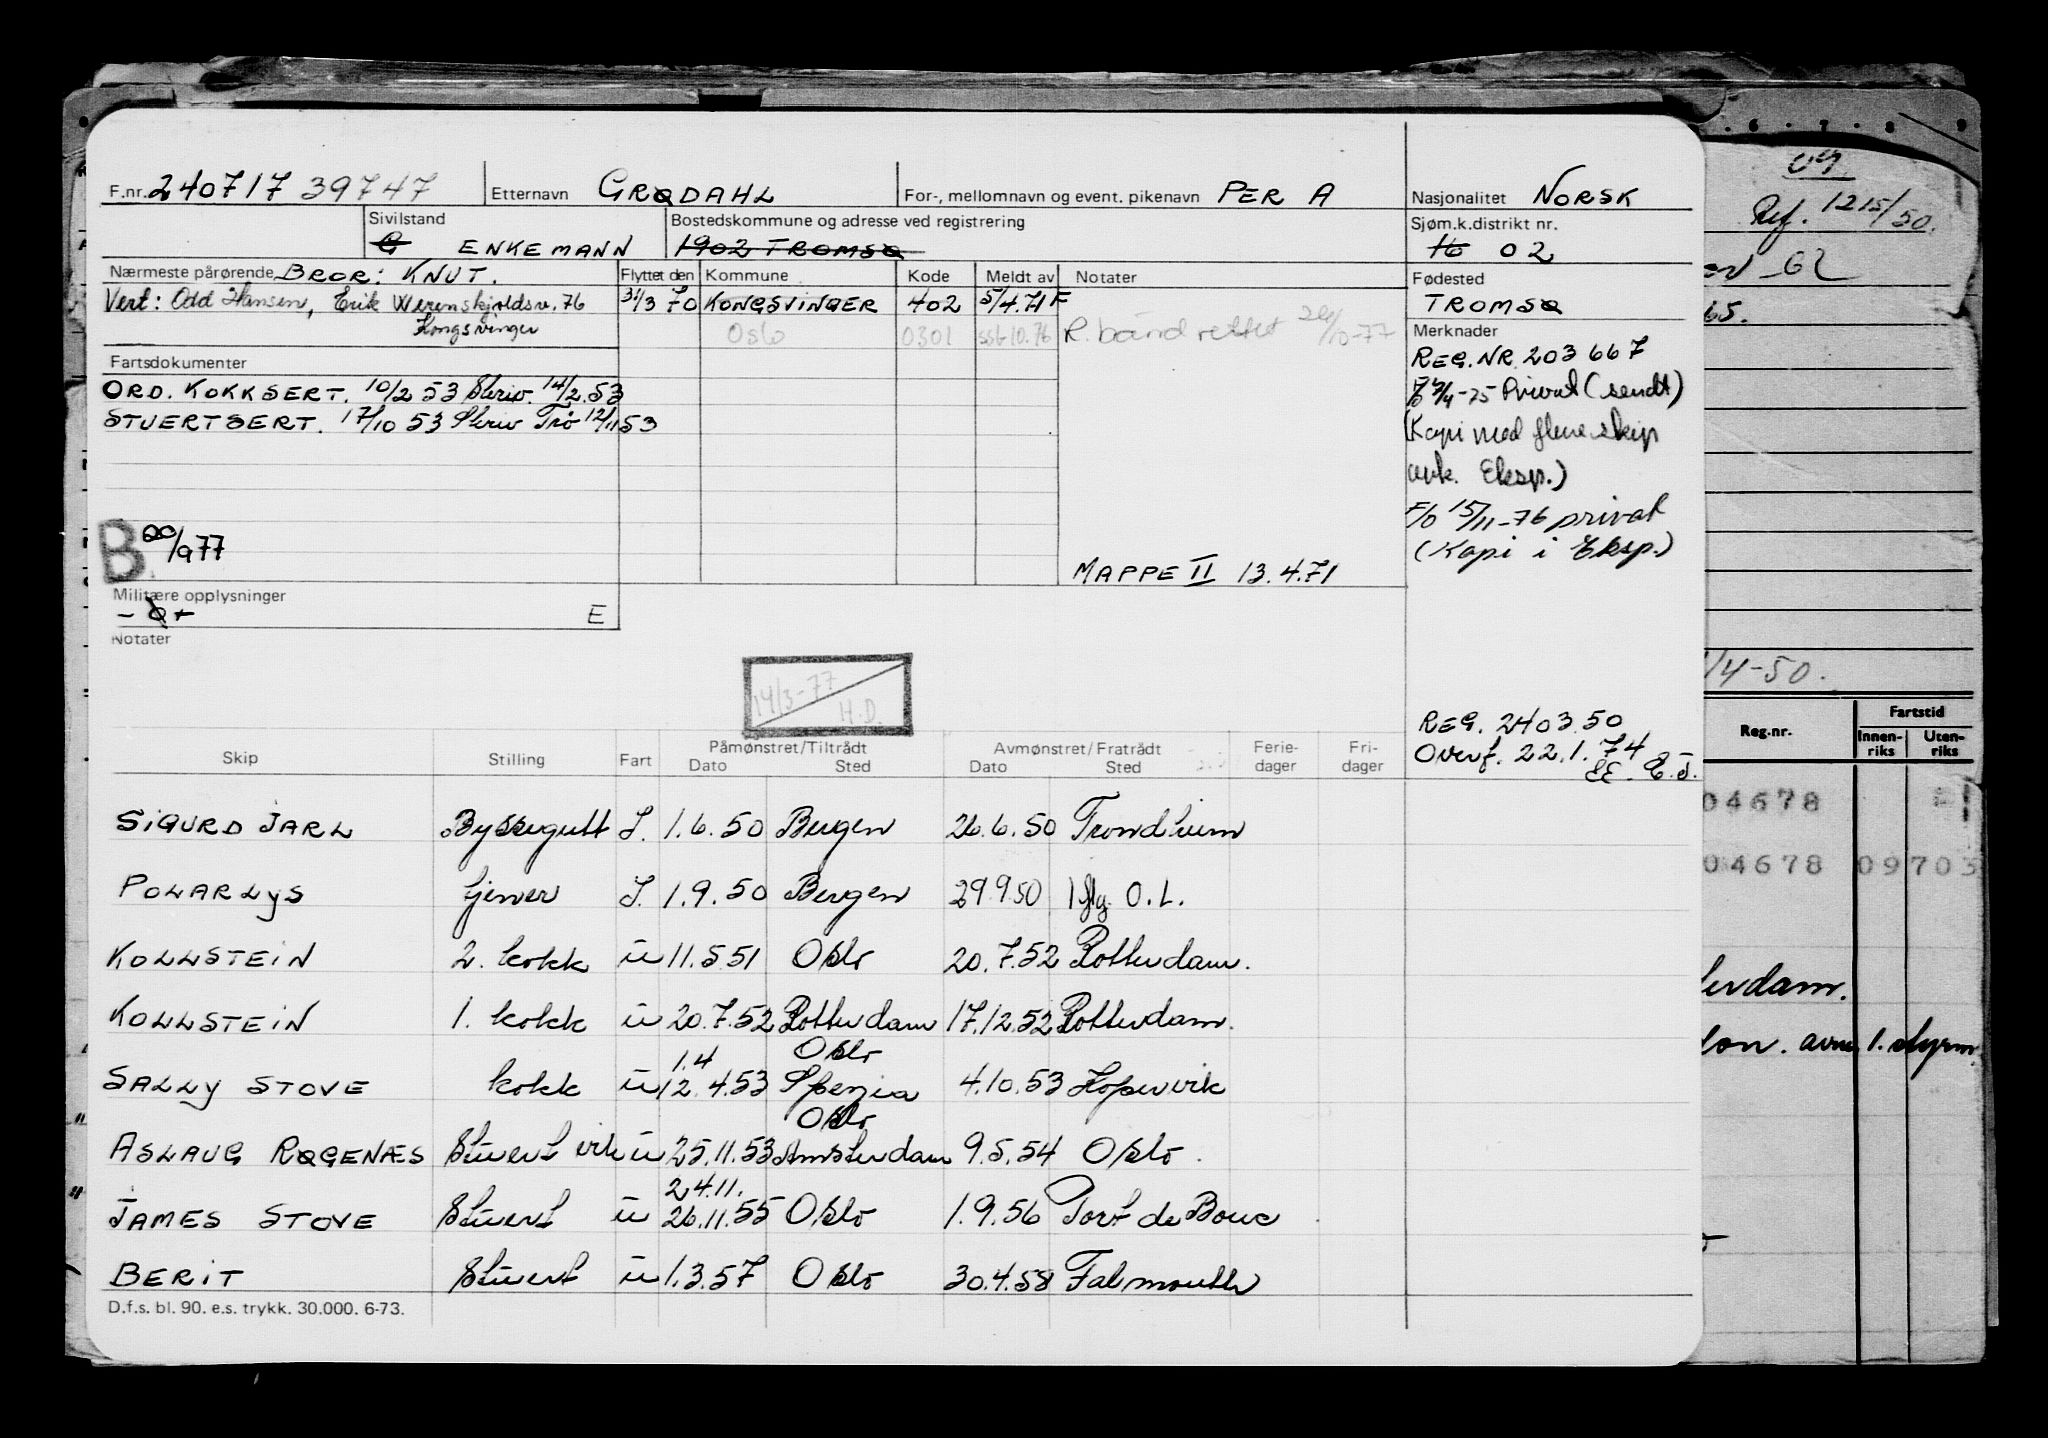 F.nr. 240717 39747 Etternavn GRØDAHL For-, mellomnavn og event. pikenavn PER A Nasjonalitet NORSK
Sivilstand G ENKEMANN Bostedskommune og adresse ved registrering 1902 TROMSØ Sjøm.k.distrikt nr. 16 02
Nærmeste pårørende BROR: KNUT. Flyttet den Kommune Kode Meldt av Notater Fødested
Vert: Odd Hansen, Erik Werenskjoldsv. 76 31/3 70 KONGSVINGER 402 5/4.71 F TROMSØ
Kongsvinger Oslo 0301 ssb 10.76 R. bånd rettet 20/10-77 Merknader
Fartsdokumenter REG.NR. 203 667
ORD. KOKKSERT. 10/2 53 Skriv. 14/2.53 Privat (sendt)
STUERTSERT. 17/10 53 Skriv Trø 12/11 53 (Kopi med flere skip
Eksp.)
B 20/9 77 F/O 15/11-76 privat
(Kopi i Eksp.)
MAPPE II 13.4.71
Militære opplysninger
E
Notater
14/3-77
H.D.
REG. 240350
Overf. 22.1.74
Skip Stilling Fart Påmønstret/Tiltrådt Dato Sted Avmønstret/Fratrådt Dato Sted Ferie-dager Fri-dager
SIGURD JARL Byssegutt I. 1.6.50 Bergen 26.6.50 Trondheim
POLARLYS tjener I. 1.9.50 Bergen 29.9.50 O.L.
KOLLSTEIN 2. kokk u 11.5.51 Oslo 20.7.52 Rotterdam.
KOLLSTEIN 1. kokk u 20.7.52 Rotterdam 17.12.52 Rotterdam.
1.4 Oslo
SALLY STOVE kokk u 12.4.53 Spezia 4.10.53 Hopervik
Oslo
ASLAUG RØGENÆS Stuert vik u 25.11.53 Amsterdam 9.5.54 Oslo.
24.11.
JAMES STOVE Stuert u 26.11.55 Oslo 1.9.56 Port de Bouc
BERIT Stuert u 1.3.57 Oslo 30.4.58 Falmouth
D.f.s. bl. 90. e.s. trykk. 30.000. 6-73.
6 7 8 9
Ref. 1215/50.
62
65.
/4-50.
Reg.nr. Fartstid
Innen-riks Uten-riks
04678
04678 09703
erdam.
on. avm. 1. styrm.